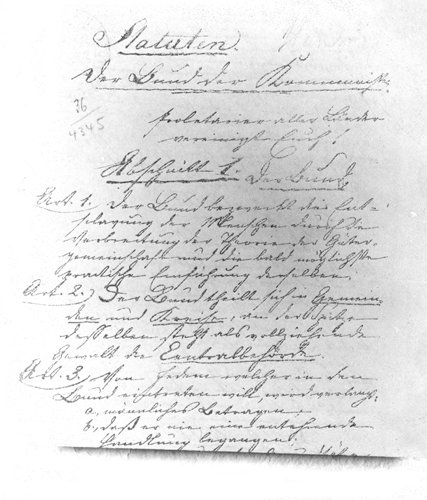 Statuten.
Der Bund der Kommunisten
36
4345
Proletarier aller Länder
vereinigt Euch!
Abschnitt 1. Der Bund.
Art. 1. Der Bund bezweckt die Ent-
sklavung der Menschen durch die
Verbreitung der Theorie der Güter-
gemeinschaft und die bald möglichste
practische Einführung derselben.
Art. 2. Der Bund theilt sich in Gemein-
den und Kreise, an der Spitze
desselben steht als vollziehende
Gewalt die Centralbehörde.
Art. 3. Von Jedem welcher in den
Bund eintreten will, wird verlangt:
a, männliches Betragen;
b, daß er nie eine entehrende
Handlung begangen;